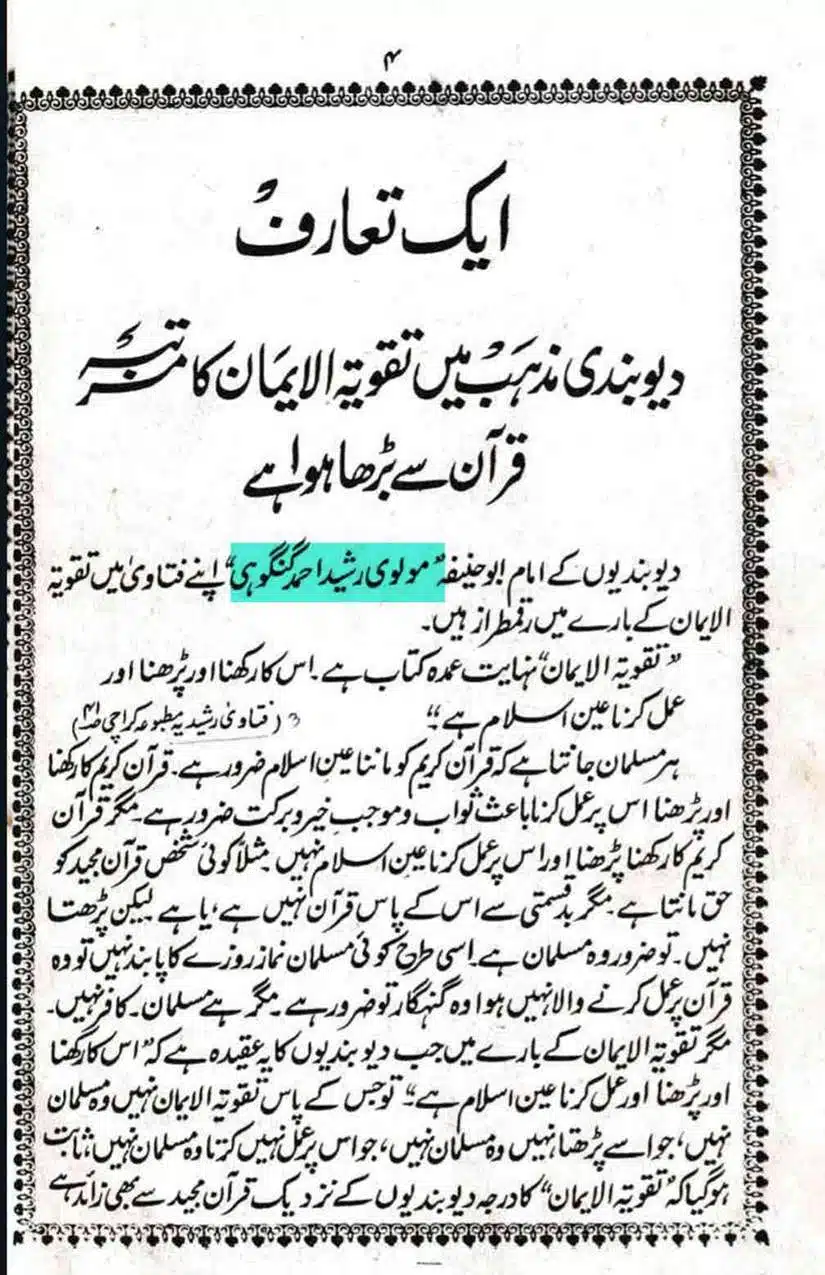 ۴
ایک تعارف
دیوبندی مذہب میں تقویۃ الایمان کا مرتبہ
قرآن سے بڑھا ہوا ہے
دیوبندیوں کے امام ابو حنیفہ "مولوی رشید احمد گنگوہی" اپنے فتاویٰ میں تقویۃ
الایمان کے بارے میں رقمطراز ہیں۔
"تقویۃ الایمان" نہایت عمدہ کتاب ہے۔ اس کا رکھنا اور پڑھنا اور
عمل کرنا عین اسلام ہے" (فتاویٰ رشیدیہ مطبوعہ کراچی ص۴۱)
ہر مسلمان جانتا ہے کہ قرآن کریم کو ماننا عین اسلام ضرور ہے۔ قرآن کریم کا رکھنا
اور پڑھنا اس پر عمل کرنا باعث ثواب و موجب خیر و برکت ضرور ہے۔ مگر قرآن
کریم کا رکھنا پڑھنا اور اس پر عمل کرنا عین اسلام نہیں۔ مثلاً کوئی شخص قرآن مجید کو
حق مانتا ہے۔ مگر بدقسمتی سے اس کے پاس قرآن نہیں ہے، یا ہے لیکن پڑھتا
نہیں۔ تو ضرور وہ مسلمان ہے۔ اسی طرح کوئی مسلمان نماز روزے کا پابند نہیں تو وہ
قرآن پر عمل کرنے والا نہیں ہوا وہ گنہگار تو ضرور ہے۔ مگر ہے مسلمان۔ کافر نہیں۔
مگر تقویۃ الایمان کے بارے میں جب دیوبندیوں کا یہ عقیدہ ہے کہ "اس کا رکھنا
اور پڑھنا اور عمل کرنا عین اسلام ہے" تو جس کے پاس تقویۃ الایمان نہیں وہ مسلمان
نہیں، جو اسے پڑھتا نہیں وہ مسلمان نہیں، جو اس پر عمل نہیں کرتا وہ مسلمان نہیں، ثابت
ہو گیا کہ "تقویۃ الایمان" کا درجہ دیوبندیوں کے نزدیک قرآن مجید سے بھی زائد ہے